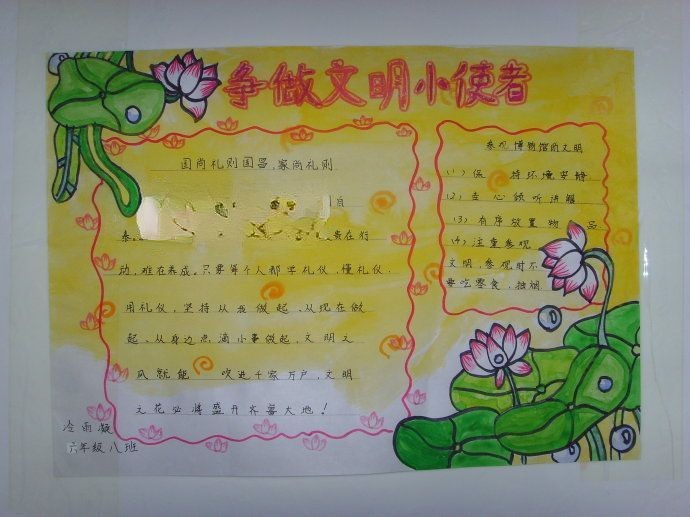 争做文明小使者
国尚礼则国昌,家尚礼则
贵在行
动,难在养成。只要每个人都学礼仪,懂礼仪.
用礼仪,坚持从我做起、从现在做
起、从身边点滴小事做起,文明之
风就能 吹进千家万户,文明
之花必将盛开齐鲁大地!
冷雨凝
六年级八班
参观博物馆的文明
(1)保 持环境安静
(2)专心倾听讲解
(3)有序放置物 品
(4)注重参观
文明,参观时不
要吃零食,抽烟